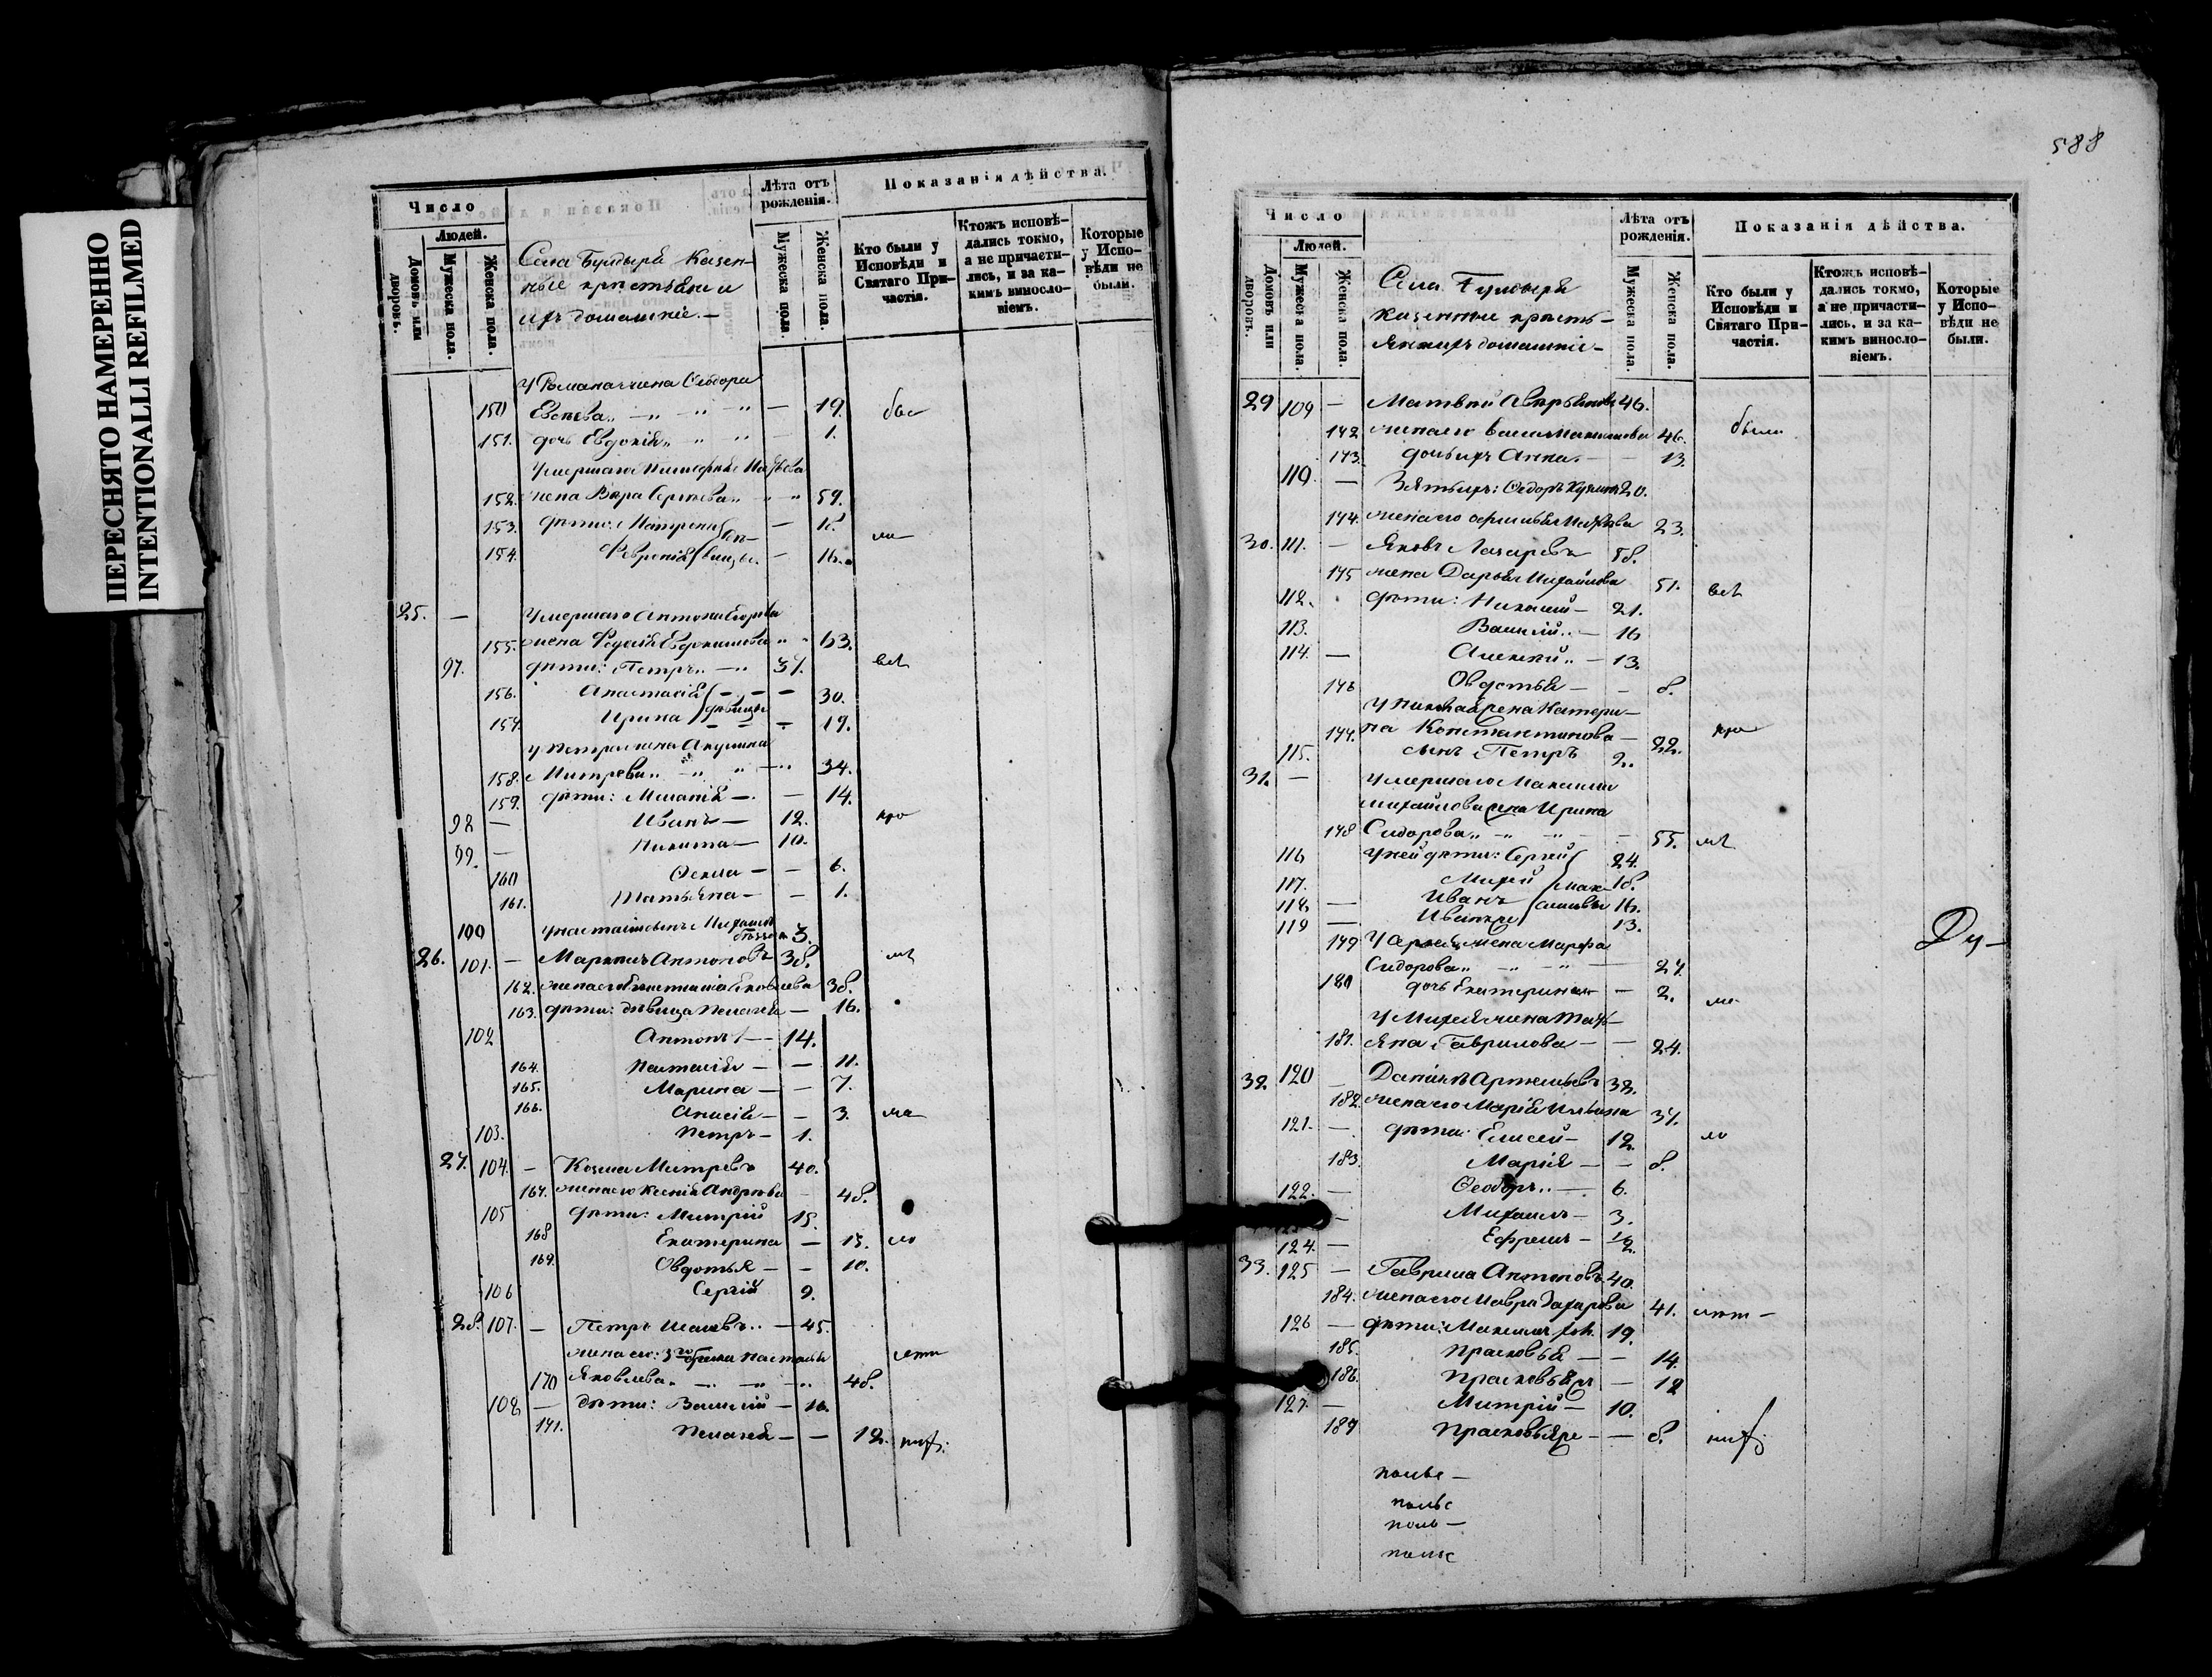 ПЕРЕСНЯТО НАМЕРЕННО
INTENTIONALLI REFILMED
Число
Людей.
Домовъ или дворовъ.
Мужеска пола.
Женска пола.
Села Бундыря Казен-
ные крестьяни и
ихъ домашніе.—
Лѣта отъ рожденія.
Мужеска пола.
Женска пола.
Показанія дѣйства.
Кто были у Исповѣди и Святаго При-частія.
Ктожъ исповѣ-дались токмо, а не причасти-лись, и за ка-кимъ винословіемъ.
Которые у Испо-вѣди не были.
у Романа жена Ѳеодора
150 — 19.
151. дочь Евдокія 1.
Умершаго
152. жена Вѣра Сергѣева 59.
153. дѣти: 18.
154. Февронія 16.
25. — Умершаго Антона Егорова
155. жена Федосія Евдокимова 63.
97. дѣти: Петръ 37. всѣ
156. Анастасія 30.
157. Ирина дѣвицы 19.
у Петра жена Акулина
158. Митрева 34.
159. дѣти: Меланія — 14.
98 — Иванъ — 12.
99. — Никита — 10.
160 Ѳекла — — 6.
161. Татьяна — — 1.
100 у Настасіи сынъ Михаилъ 3.
26. 101. — Маркелъ Антоновъ 38.
162. жена его Анастасія Яковлева 38.
163. дѣти: дѣвица Пелагея — 16.
102 Антонъ — 14.
164. Настасія — — 11.
165. Марина — — 7.
166. Анисія — — 3.
103. Петръ — 1.
27. 104. — Козма Митревъ 40.
167. жена его Ксенія Андрѣева 48.
105 дѣти: Митрій 15.
168 Екатерина — 13.
169. Овдотья — — 10.
106 Сергій 9.
28. 107. — Петръ Исаевъ — 45.
жена его: 3го брака Настасья
170 Яковлева 48.
108 — дѣти: Василій — 16.
171. Пелагея — — 12.
588
Число
Людей.
Домовъ или дворовъ.
Мужеска пола.
Женска пола.
Села Бундыря
казенные кресть-
яни ихъ домашніе—
Лѣта отъ рожденія.
Мужеска пола.
Женска пола.
Показанія дѣйства.
Кто были у Исповѣди и Святаго При-частія.
Ктожъ исповѣ-дались токмо, а не причасти-лись, и за ка-кимъ винословіемъ.
Которые у Испо-вѣди не были.
29 109 — Матвей 46.
172 жена его 46. были
173. дочь ихъ Анна. — — 13.
110. — Зять ихъ: Ѳедоръ 20.
174. жена его 23.
30. 111. — Яковъ Лазаревъ 58.
175 жена Дарья Михайлова 51. всѣ
112. дѣти: Николай — 21.
113. Василій — 16
114. — Алексѣй — 13.
176 Овдотья — — 8.
У Николая жена Катери-
177. на Константинова — 22.
115. сынъ Петръ 2.
31. — Умершаго Максима
Михайлова жена Ирина
178 Сидорова 55.
116 у ней дѣти: Сергій 24.
117. Михей 18.
118. — Иванъ 16.
119 — Иванъ 13.
179 У Сергія жена Марфа
Сидорова 27
180 дочь Екатерина — 2.
У Михея жена Тать-
181. яна Гаврилова — — 24.
32. 120 — Данилъ Артемьевъ 38.
182. жена его Марія Ильина 37.
121. — дѣти: Елисей — 12.
183. Марія — — 8.
122. — Ѳеодоръ — 6.
— Михаилъ — 3.
124. — Ефремъ — 1/2.
33. 125 — Гаврила Антоновъ 40.
184. жена его Мавра Захарова 41.
126 — дѣти: Максимъ 19.
185. Прасковья — — 14.
186. Прасковья — 12
127. — Митрій — 10.
187 Прасковья — — 8.